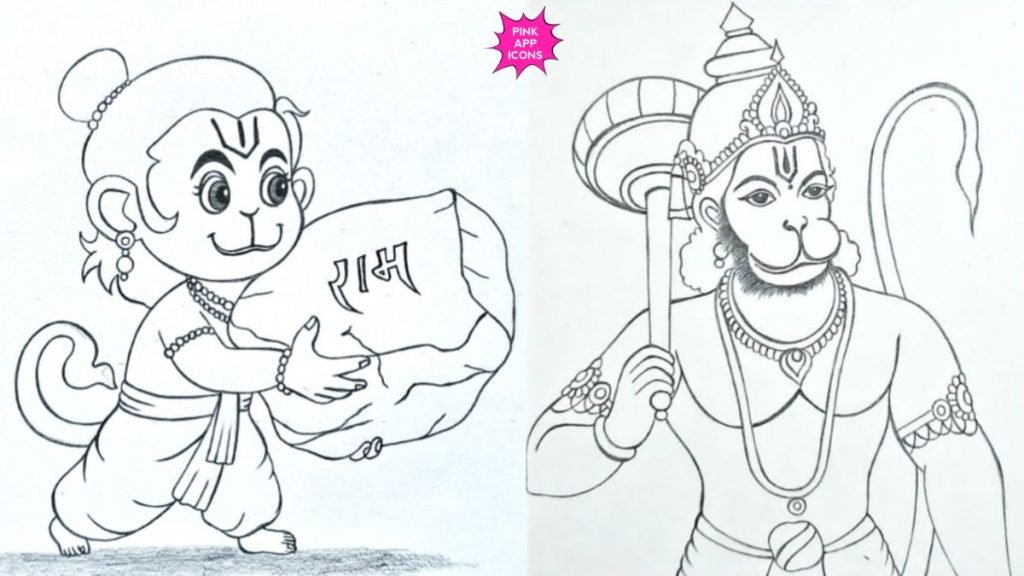 PINK
APP
ICONS
राम